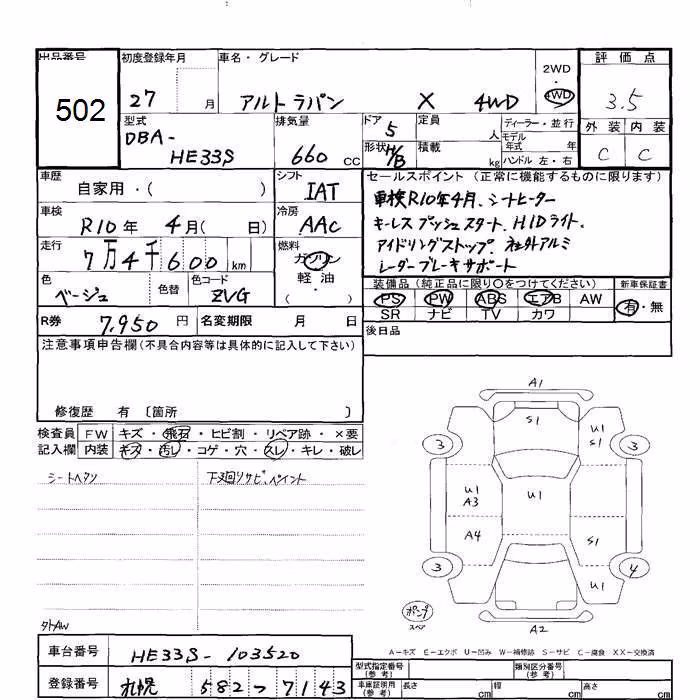 出品番号 初度登録年月 車名・グレード 2WD 評価点
502 27 月 アルトラパン X 4WD 4WD 3.5
型式 排気量 ドア 定員 ディーラー・並行 外装 内装
DBA- 5 人 モデル年式 年 C C
HE33S 660 cc 形状 H/B 積載 kg ハンドル 左・右
車歴 シフト セールスポイント (正常に機能するものに限ります)
自家用・( ) IAT 車検R10年4月、シートヒーター
車検 冷房 キーレスプッシュスタート、HIDライト、
R10年 4月( 日) AAC アイドリングストップ 社外アルミ
走行 燃料 レーダーブレーキサポート
7万4千600km ガソリン
軽油・
( )
色 色替 色コード 装備品 (純正品に限り○をつけてください) 新車保証書
ベージュ ZVG PS PW ABS エアB AW 有・無
SR ナビ TV カワ
R券 7,950円 名変期限 月 日 後日品
注意事項申告欄(不具合内容等は具体的に記入して下さい)
修復歴 有 〔箇所 〕
検査員 FW キズ・飛石・ヒビ割・リペア跡・×要
記入欄 内装 キズ・汚レ・コゲ・穴・スレ・キレ・破レ
シートヘタリ 下廻リサビ、ペイント
A1
S1
U1
S1
3 3
U1
A3
U1
A4 S1
3 4
U1
ポンプ
スペア
A2
タトAW
A-キズ E-エクボ U-凹み W-補修跡 S-サビ C-腐食 XX-交換済
車台番号 HE33S-103520
登録番号 札幌 582つ7143
型式指定番号(参考) 類別区分番号(参考)
車庫証明用(参考) 長さ cm 幅 cm 高さ cm